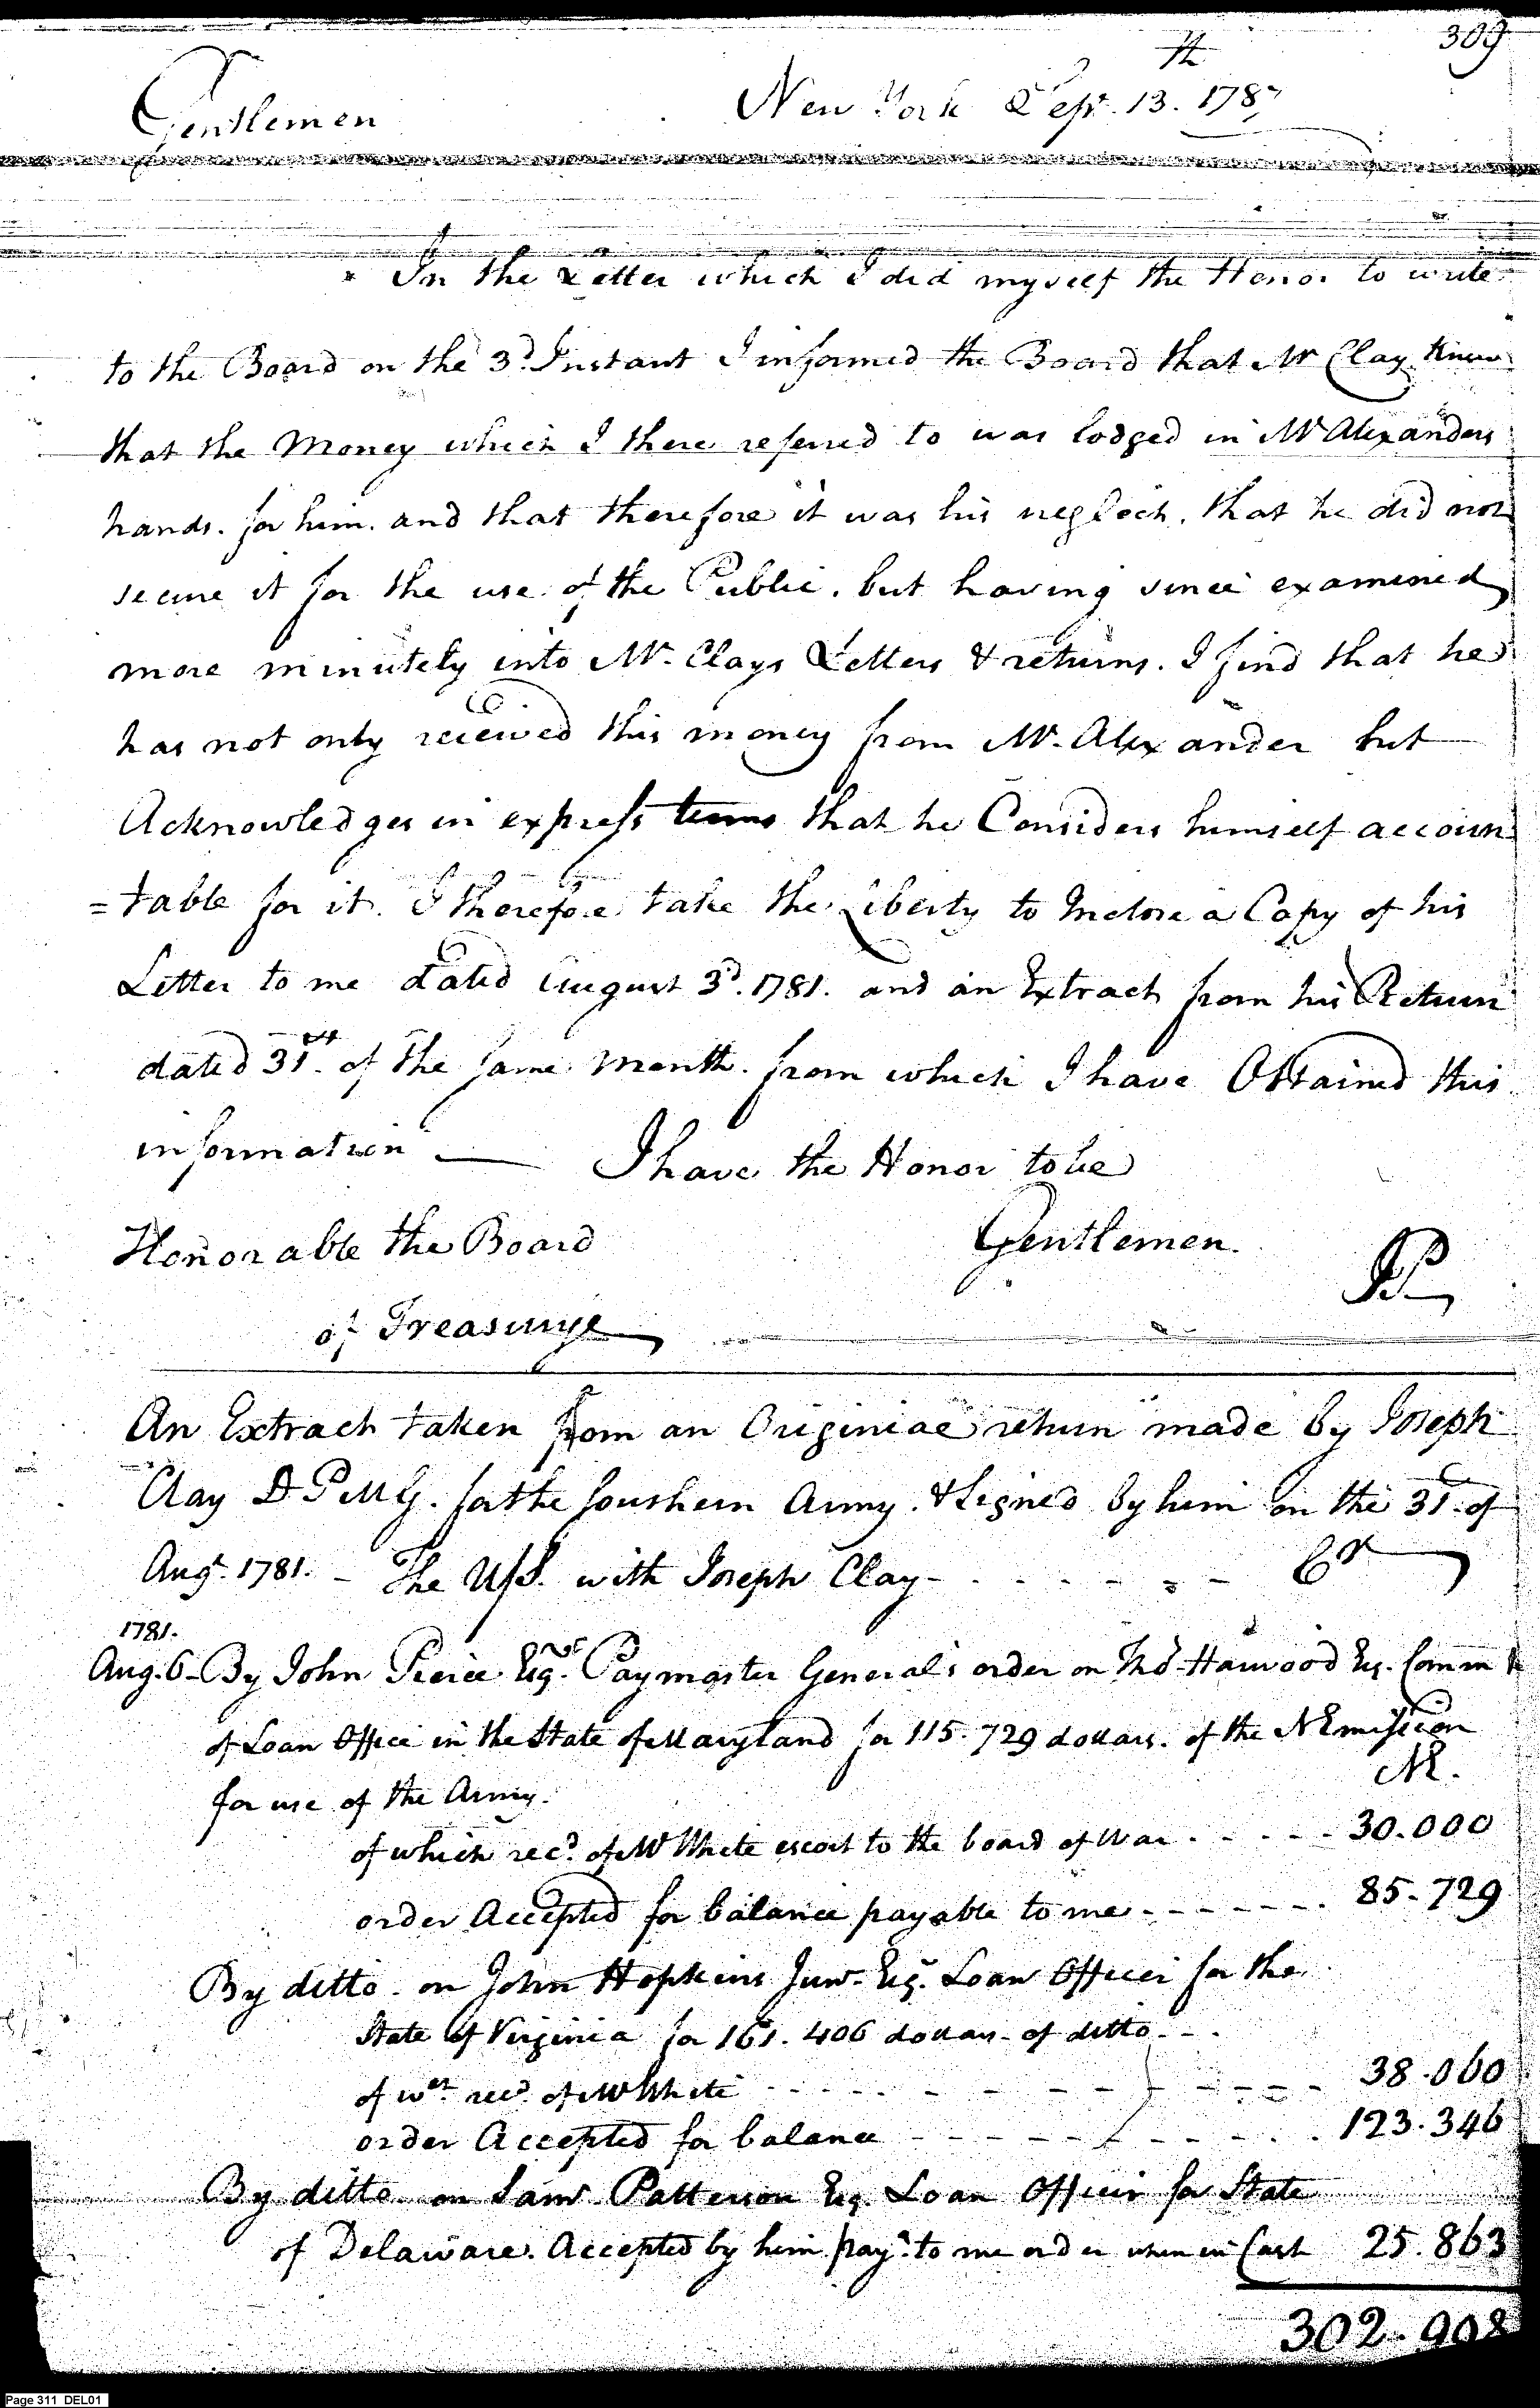 309
New York Sept. 13.th 1787
Gentlemen
In the Letter which I did myself the Honor to write
to the Board on the 3d. Instant I informed the Board that Mr Clay knew
that the Money which I there referred to was lodged in Mr Alexanders
hands. for him. and that therefore it was his neglect. that he did not
secure it for the use of the Public. but having since examined
more minutely into Mr. Clays Letters & returns. I find that he
has not only received this money from Mr. Alexander but
Acknowledges in express terms that he Considers himself accoun
=table for it. I therefore take the Liberty to Inclose a Copy of his
Letter to me dated August 3d. 1781. and an Extract from his Return
dated 31st. of the same Month. from which I have Obtained this
information — I have the Honor to be
Honorable the Board Gentlemen.
of Treasurye
An Extract taken from an Originial return made by Joseph
Clay D P M G. for the Southern Army. & Signed by him on the 31. of
Augt. 1781. - The U.S. with Joseph Clay - - - - - - - Cr
1781.
Aug. 6 - By John Pierce Esqr. Paymaster General's order on Thos. Harwood Esq. Commr
of Loan Office in the State of Maryland for 115.729 dollars. of the N Emission
for use of the Army. NE.
of which recd. of Mr White escort to the board of War - - - - - 30.000
order Accepted for balance payable to me - - - - - - - 85.729
By ditto. on John Hopkins Junr. Esqr. Loan Officer for the
State of Virginia for 161.406 dollars - of ditto - - .
of wch. recd. of Mr White - - - - - - - - - - - 38.060
order Accepted for balance - - - - - - - - - - 123.346
By ditto on Saml. Patterson Esq. Loan Officer for State
of Delaware. Accepted by him pay. to me order when in Cash 25.863
302.908
Page 311 DEL01